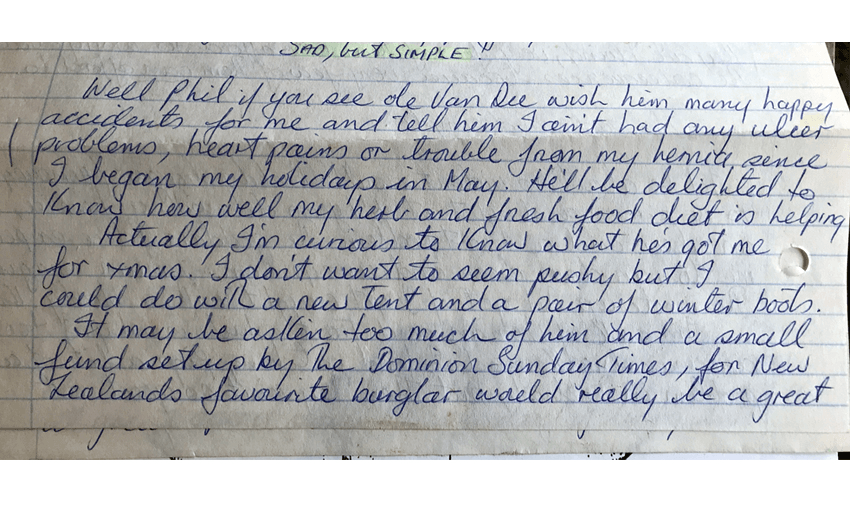 SAD, but SIMPLE"
Well Phil if you see ole Van Dee wish him many happy
accidents for me and tell him I ain't had any ulcer
problems, heart pains or trouble from my hernia since
I began my holidays in May. He'll be delighted to
know how well my herb and fresh food diet is helping
Actually I'm curious to know what he's got me
for xmas. I don't want to seem pushy but I
could do with a new Tent and a pair of winter boots.
It may be asken too much of him and a small
fund set up by The Dominion Sunday Times, for New
Zealands favourite burglar would really be a great